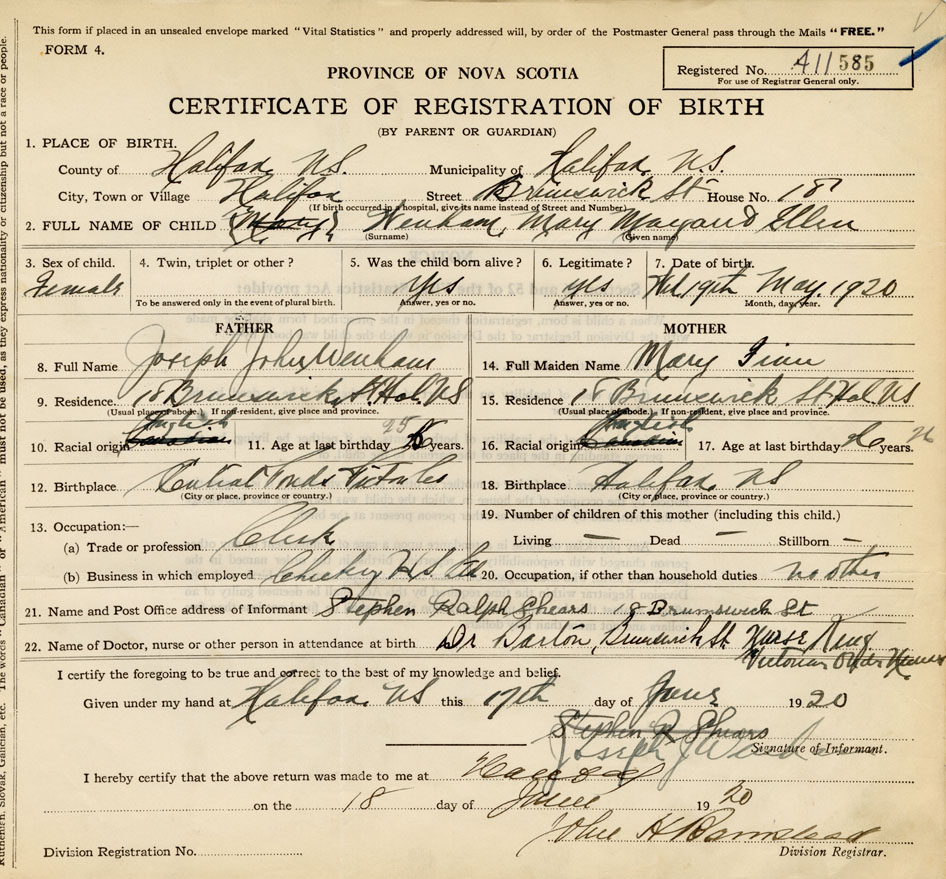 This form if placed in an unsealed envelope marked "Vital Statistics" and properly addressed will, by order of the Postmaster General pass through the Mails "FREE."
FORM 4.
Registered No. A11585
For use of Registrar General only.
PROVINCE OF NOVA SCOTIA
CERTIFICATE OF REGISTRATION OF BIRTH
(BY PARENT OR GUARDIAN)
1. PLACE OF BIRTH.
County of Halifax, N.S. Municipality of Halifax, N.S.
City, Town or Village Halifax Street Brunswick St House No. 18
(If birth occurred in a hospital, give its name instead of Street and Number)
2. FULL NAME OF CHILD Wenham, Mary Margaret Ellen
(Surname) (Given name)
3. Sex of child. 4. Twin, triplet or other? 5. Was the child born alive? 6. Legitimate? 7. Date of birth.
Female Yes yes 19th May. 1920
To be answered only in the event of plural birth. Answer, yes or no. Answer, yes or no. Month, day, year.
FATHER MOTHER
8. Full Name Joseph John Wenham 14. Full Maiden Name Mary Finn
9. Residence 18 Brunswick St. Hal. N.S 15. Residence 18 Brunswick St Hal. N.S
(Usual place of abode.) If non-resident, give place and province. (Usual place of abode.) If non-resident, give place and province.
10. Racial origin English Canadian 11. Age at last birthday 25 years. 16. Racial origin English Canadian 17. Age at last birthday 26 years. 26
12. Birthplace 18. Birthplace Halifax, N.S
(City or place, province or country.) (City or place, province or country.)
13. Occupation:— 19. Number of children of this mother (including this child.)
(a) Trade or profession Clerk Living — Dead — Stillborn —
(b) Business in which employed 20. Occupation, if other than household duties no other
21. Name and Post Office address of Informant Stephen Ralph Shears 18 Brunswick St
22. Name of Doctor, nurse or other person in attendance at birth Dr Barton, Brunswick St. Nurse King
Victorian Order Nurses
I certify the foregoing to be true and correct to the best of my knowledge and belief.
Given under my hand at Halifax, N.S this 17th day of June 1920
Stephen R Shears
Joseph J Wenham
Signature of Informant.
I hereby certify that the above return was made to me at Halifax
on the 18 day of June 1920
John H Barnstead
Division Registration No. Division Registrar.
Ruthenien, Slovak, Galician, etc. The words "Canadian" or "American" must not be used, as they express nationality or citizenship but not a race or people.